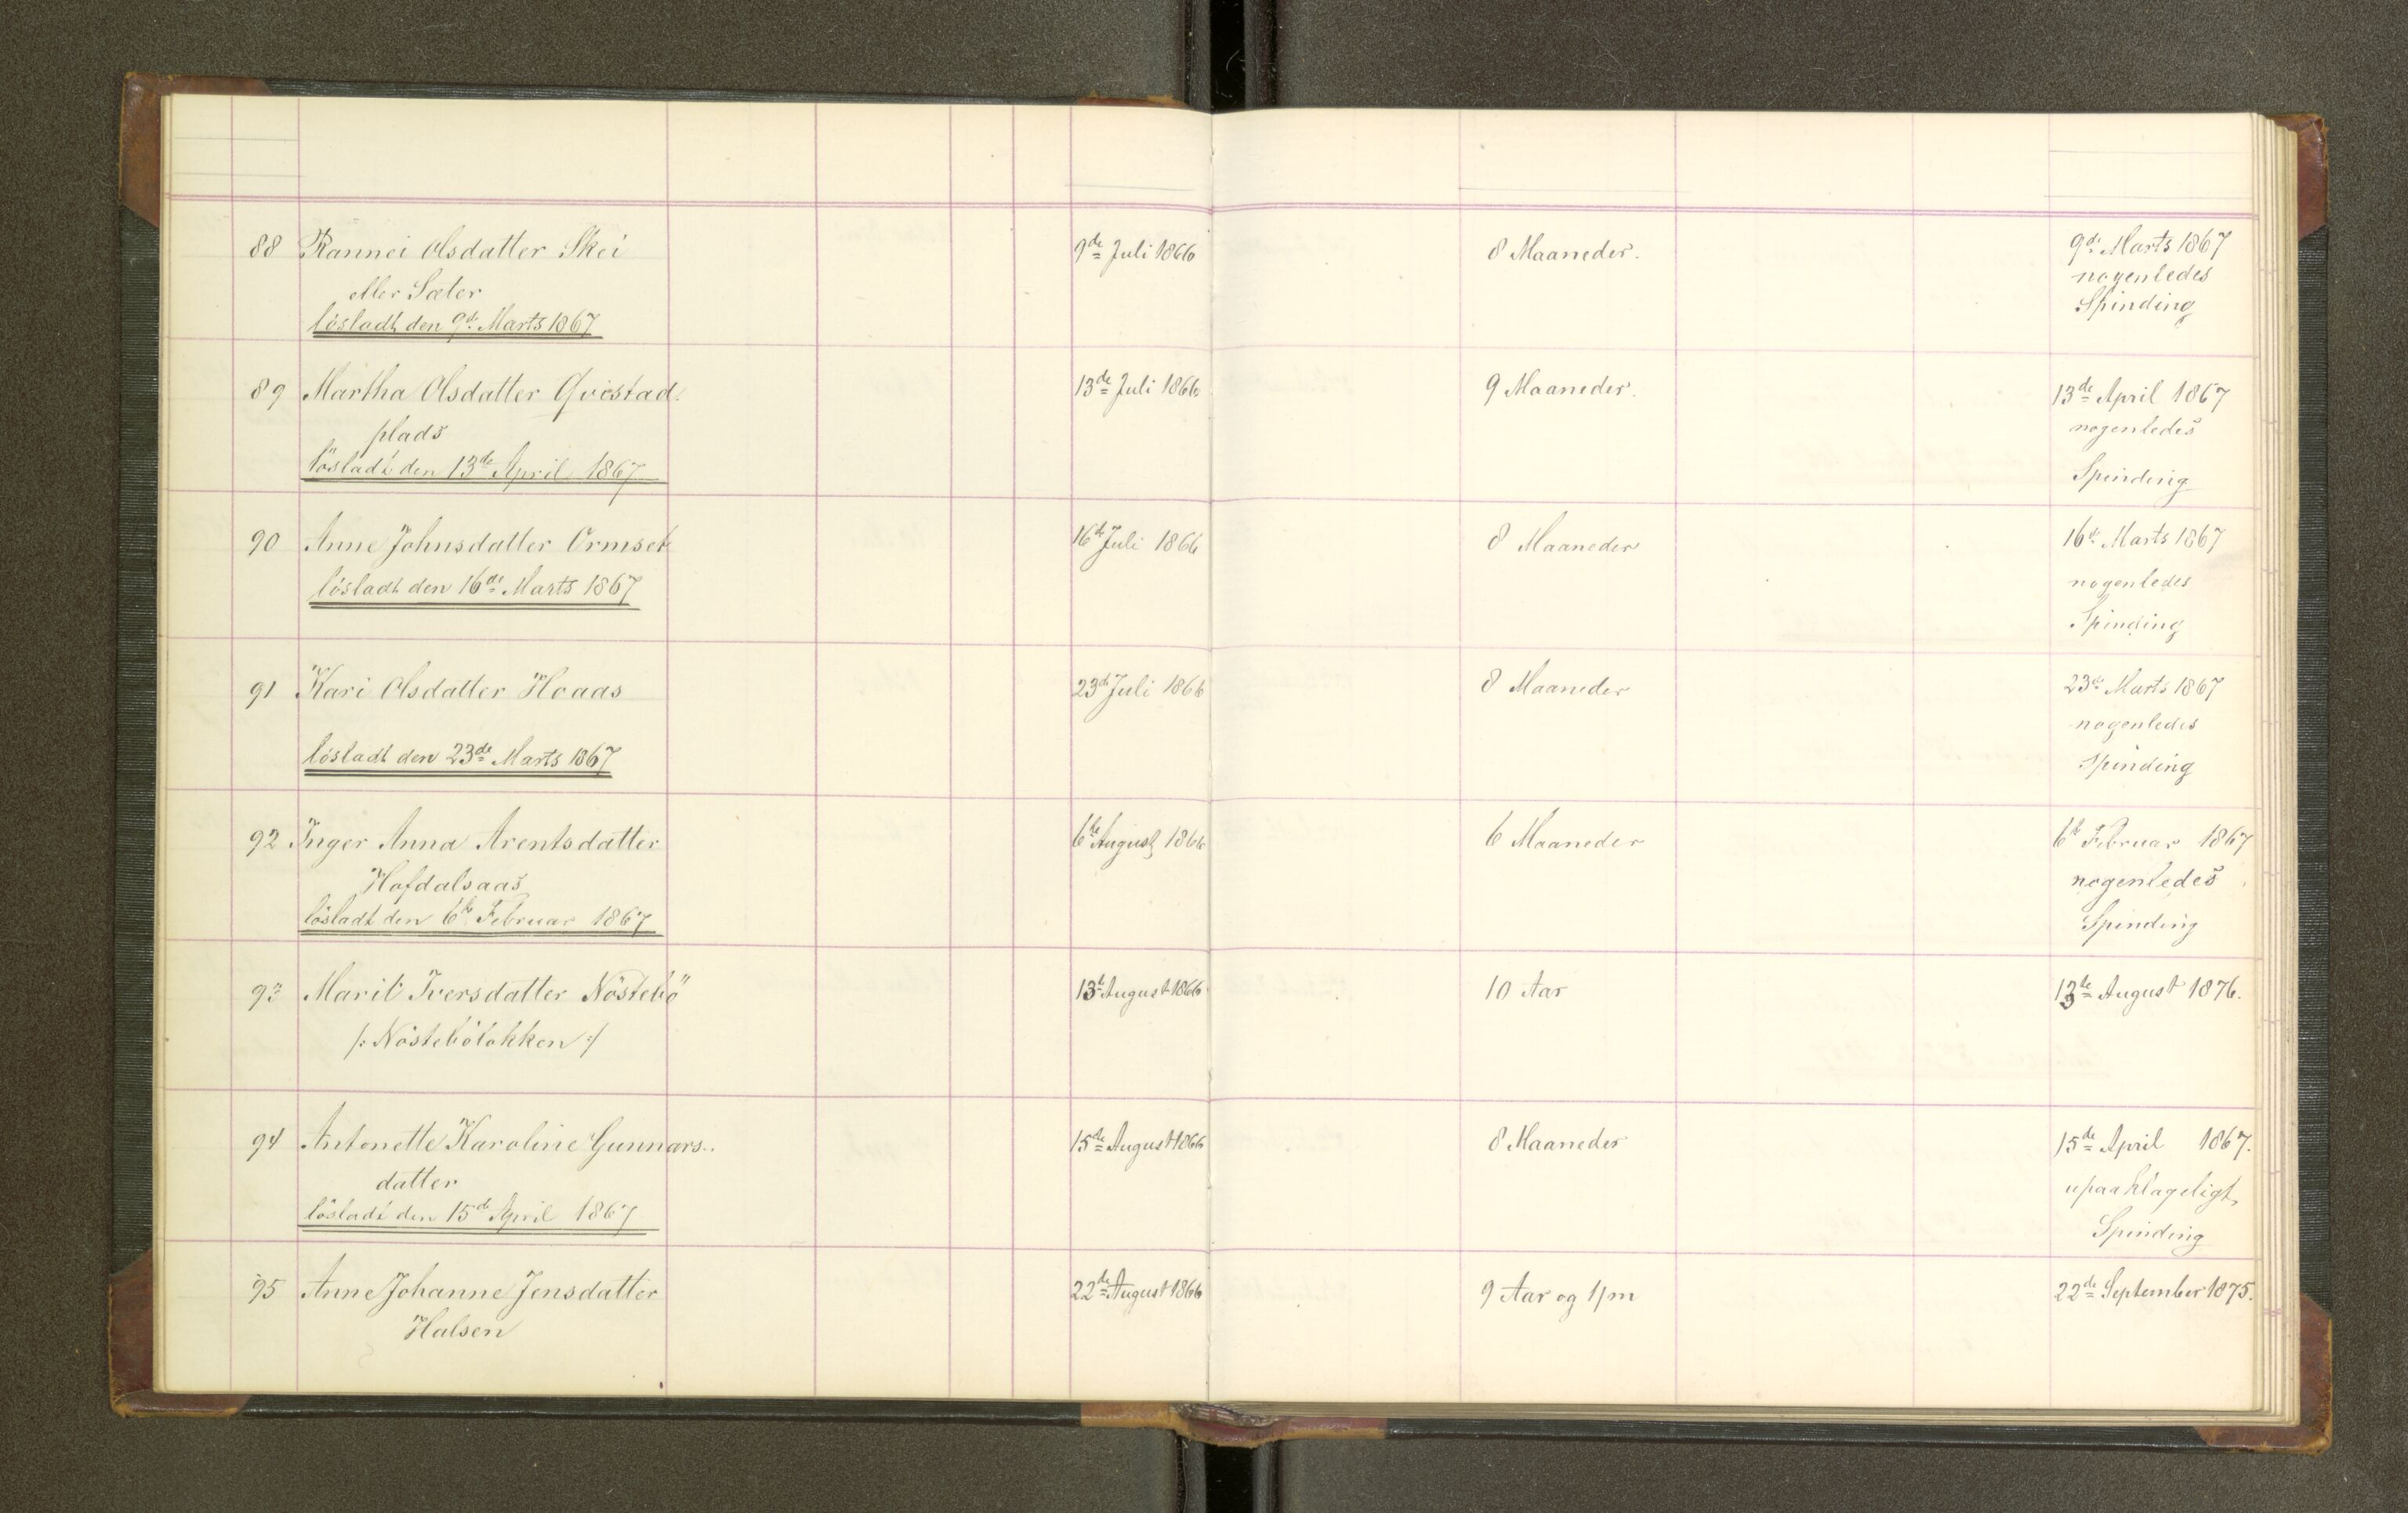 88 Rannei Olsdatter Skei 9de Juli 1866 8 Maaneder. 9de Marts 1867
eller Sæter nogenledes
lösladt den 9de Marts 1867 Spinding
89 Martha Olsdatter Qvistad 13de Juli 1866 9 Maaneder. 13de April 1867
plads nogenledes
lösladt den 13de April 1867 Spinding
90 Anne Johnsdatter Ormset 16de Juli 1866 8 Maaneder 16de Marts 1867
lösladt den 16de Marts 1867 nogenledes
Spinding
91 Kari Olsdatter Hoaas 23de Juli 1866 8 Maaneder 23de Marts 1867
nogenledes
lösladt den 23de Marts 1867 Spinding
92 Inger Anna Arentsdatter 6te August 1866 6 Maaneder 6te Februar 1867
Hofdalsaas nogenledes
lösladt den 6te Februar 1867 Spinding
93 Marit Iversdatter Nöstebö 13de August 1866 10 Aar 13de August 1876.
/: Nöstebölökken :/
94 Antonette Karoline Gunnars.. 15de August 1866 8 Maaneder 15de April 1867.
datter upaaklageligt
lösladt den 15de April 1867 Spinding
95 Anne Johanne Jensdatter 22de August 1866 9 Aar og 1/m 22de September 1875.
Halsen